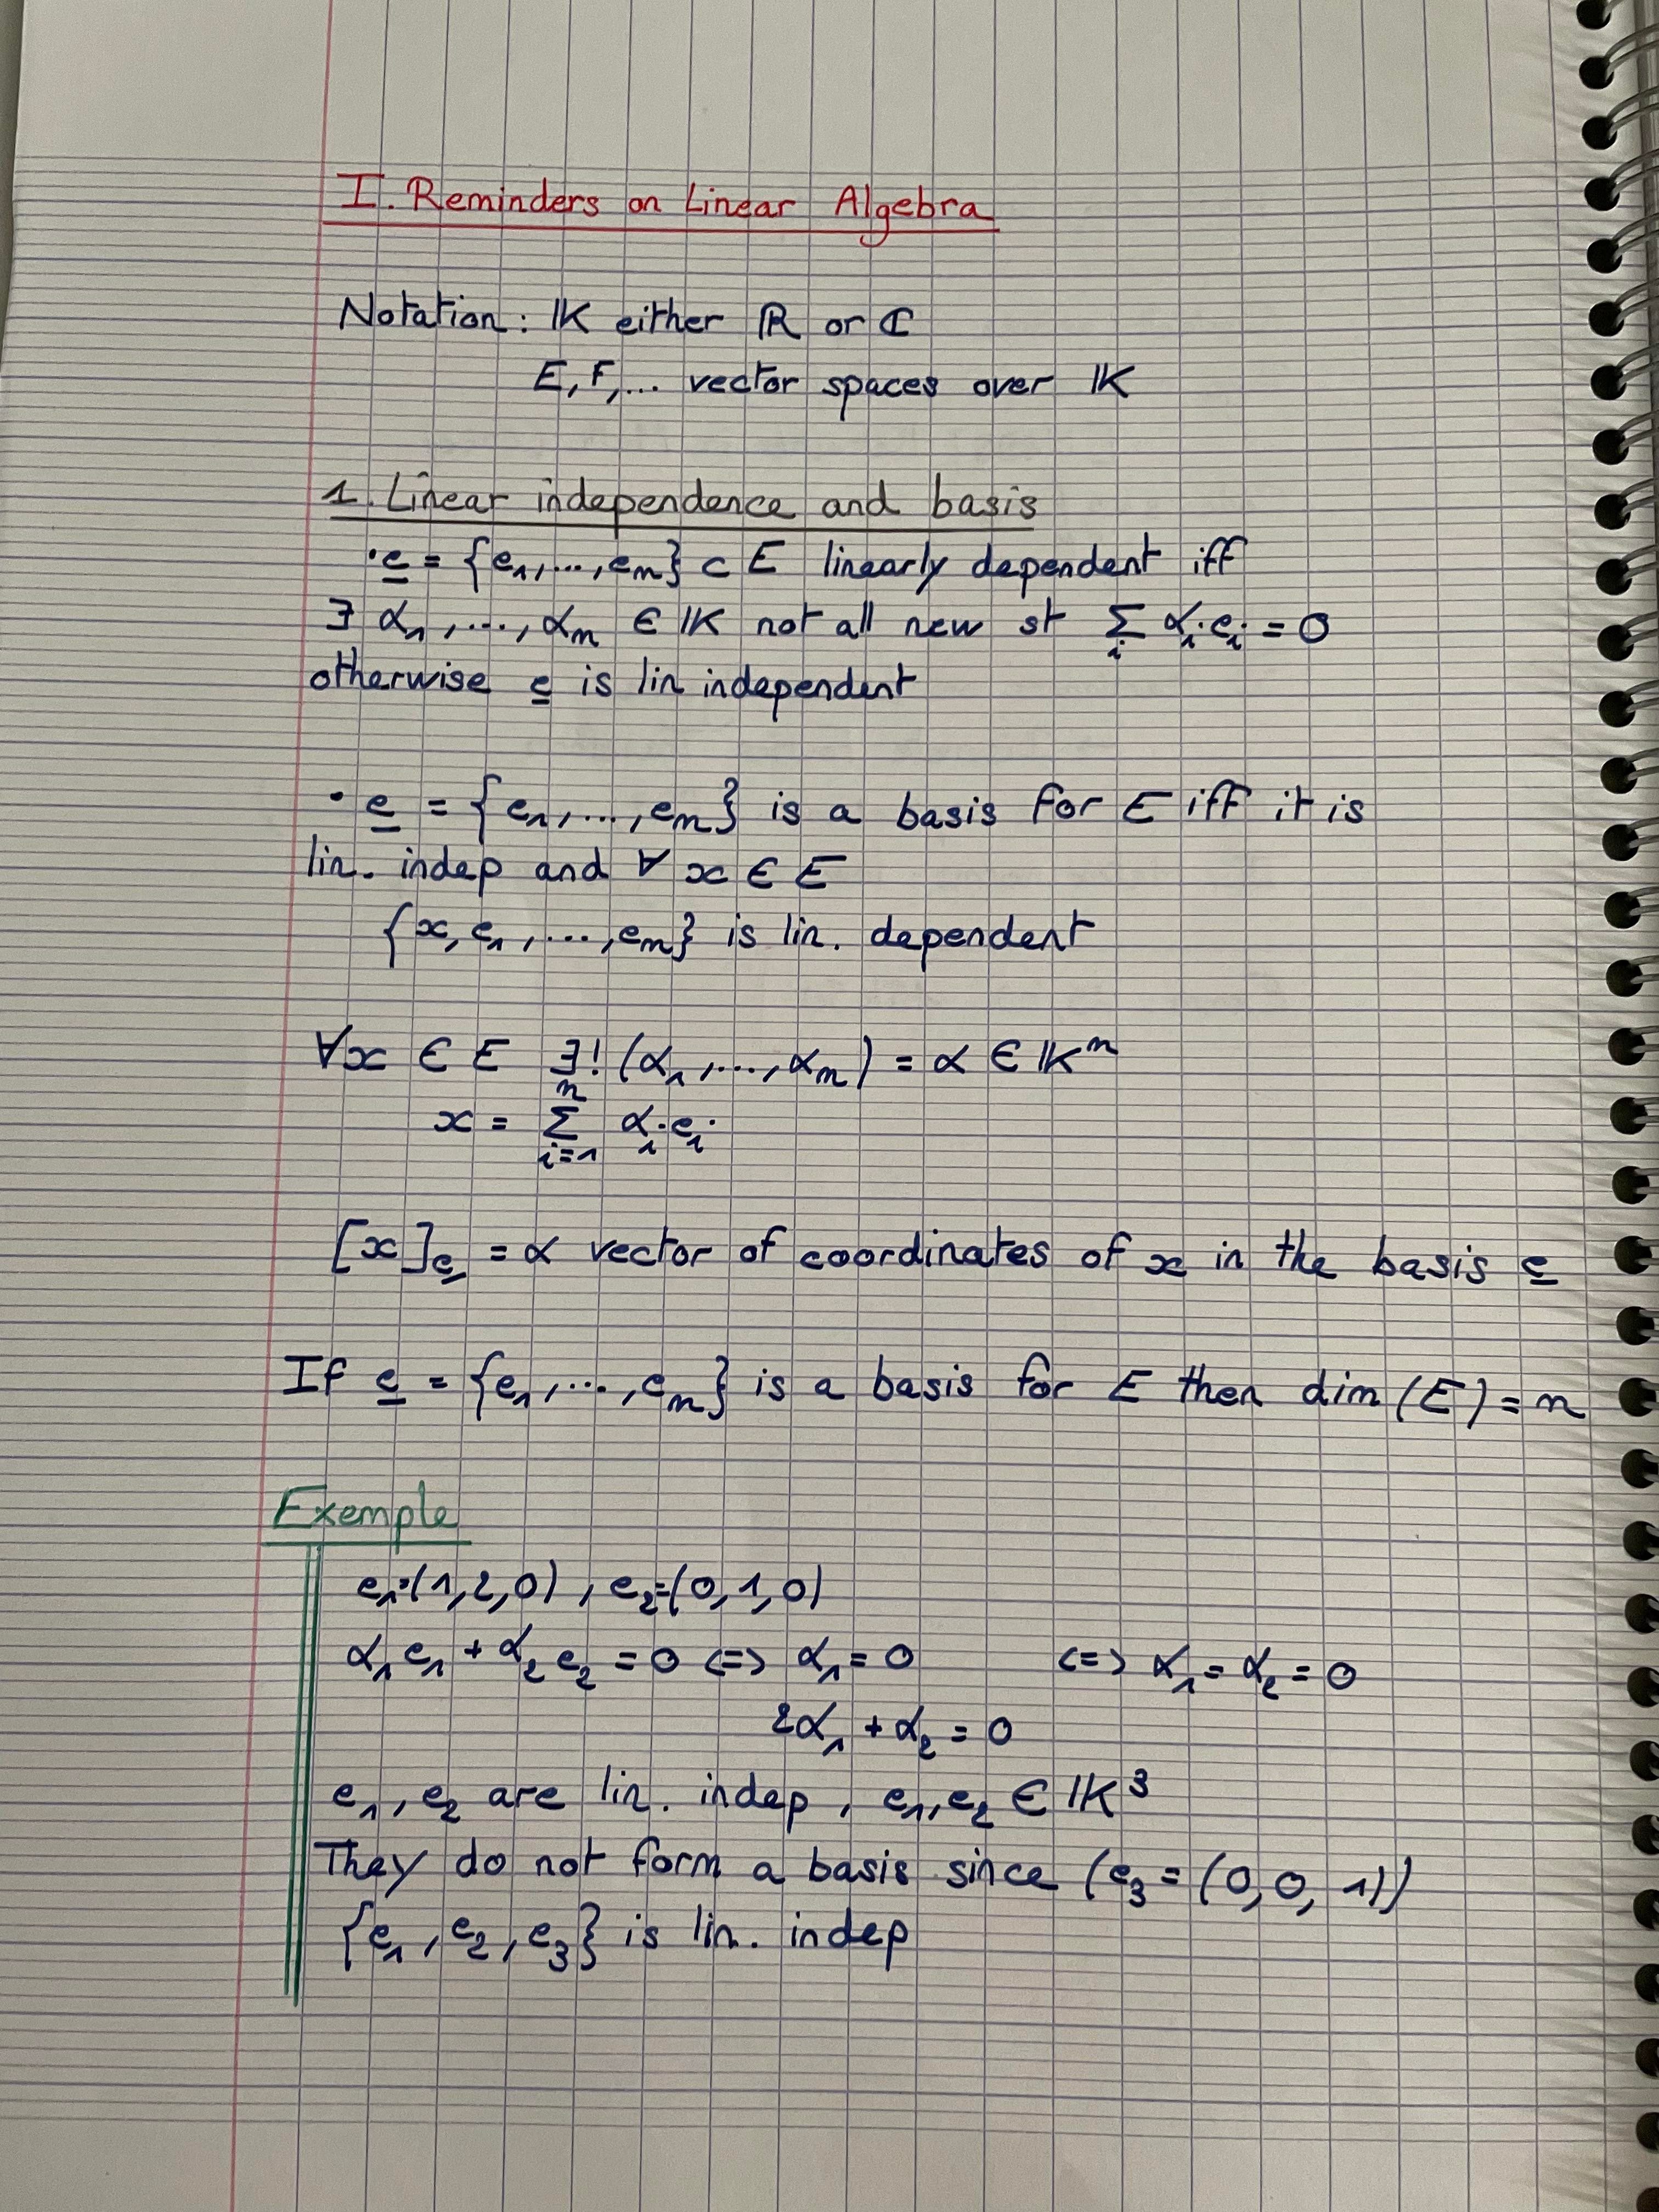 I. Reminders on Linear Algebra
Notation: 𝕂 either ℝ or ℂ
E, F, ... vector spaces over 𝕂
1. Linear independence and basis
· e̲ = {e₁, ..., eₙ} ⊂ E linearly dependent iff
∃ α₁, ..., αₙ ∈ 𝕂 not all new st ∑ᵢ αᵢ eᵢ = 0
otherwise e̲ is lin independent
· e̲ = {e₁, ..., eₙ} is a basis for E iff it is
lin. indep and ∀ x ∈ E
{x, e₁, ..., eₙ} is lin. dependent
∀x ∈ E ∃! (α₁, ..., αₙ) = α ∈ 𝕂ⁿ
x = ∑ᵢ₌₁ⁿ αᵢ eᵢ
[x]e̲ = α vector of coordinates of x in the basis e̲
If e̲ = {e₁, ..., eₙ} is a basis for E then dim(E) = n
Exemple
e₁=(1,2,0), e₂=(0,1,0)
α₁ e₁ + α₂ e₂ = 0 <=> α₁ = 0 <=> α₁ = α₂ = 0
2α₁ + α₂ = 0
e₁, e₂ are lin. indep, e₁, e₂ ∈ 𝕂³
They do not form a basis since (e₃ = (0, 0, 1))
{e₁, e₂, e₃} is lin. indep